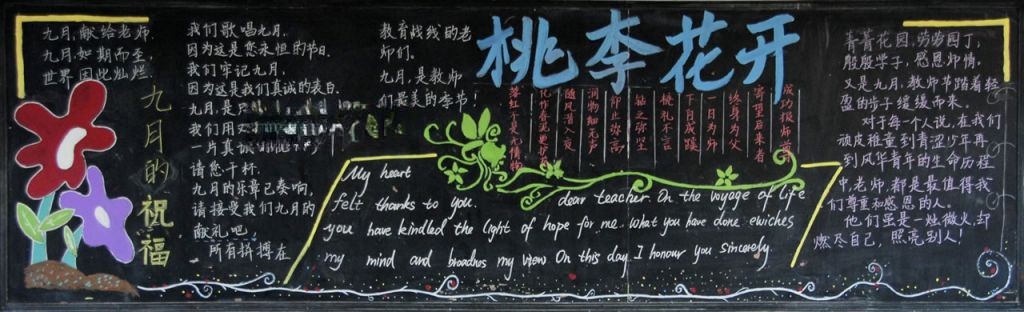 九月,献给老师.
九月,如期而至,
世界因此灿烂.
九月的祝福
我们歌唱九月,
因为这是您永恒的节日.
我们牢记九月,
因为这是我们真诚的表白.
九月,是
我们用
一片真
请您干杯.
九月的乐章已奏响,
请接受我们九月的
献礼吧,
所有拼搏在
教育战线的老
师们.
九月,是教师
们最美的季节!
桃李花开
成功报师
寄望后来者
终身为父
一日为师
下自成蹊
桃礼不言
钻之弥坚
仰止弥高
润物细无声
随风潜入夜
化作春泥更护花
落红不是无情物
My heart
felt thanks to you. dear teacher. On the voyage of life
you have kindled the light of hope for me. what you have done ewiches
my mind and broadnos my view On this day I honour you sincerely.
菁菁花园,劳劳园丁,
殷殷学子,感恩师情,
又是九月,教师节踏着轻
盈的步子缓缓而来.
对于每个人说,在我们
顽皮稚童到青涩少年再
到风华青年的生命历程
中,老师都是最值得我
们尊重和感恩的人.
他们虽是一烛微火,却
燃尽自己,照亮别人!